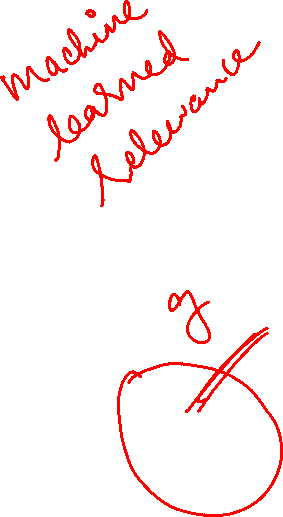 machine
learned
relevance
g